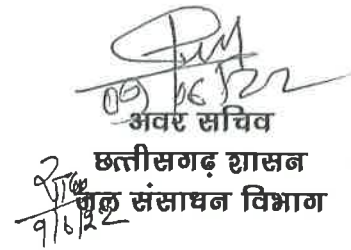 09/06/22
अवर सचिव
छत्तीसगढ़ शासन
जल संसाधन विभाग
9/6/22